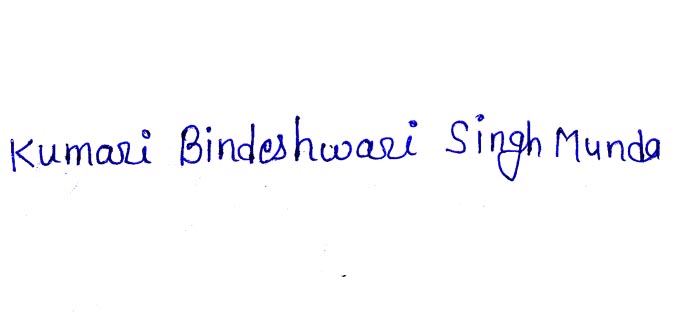 Kumari Bindeshwari Singh Munda